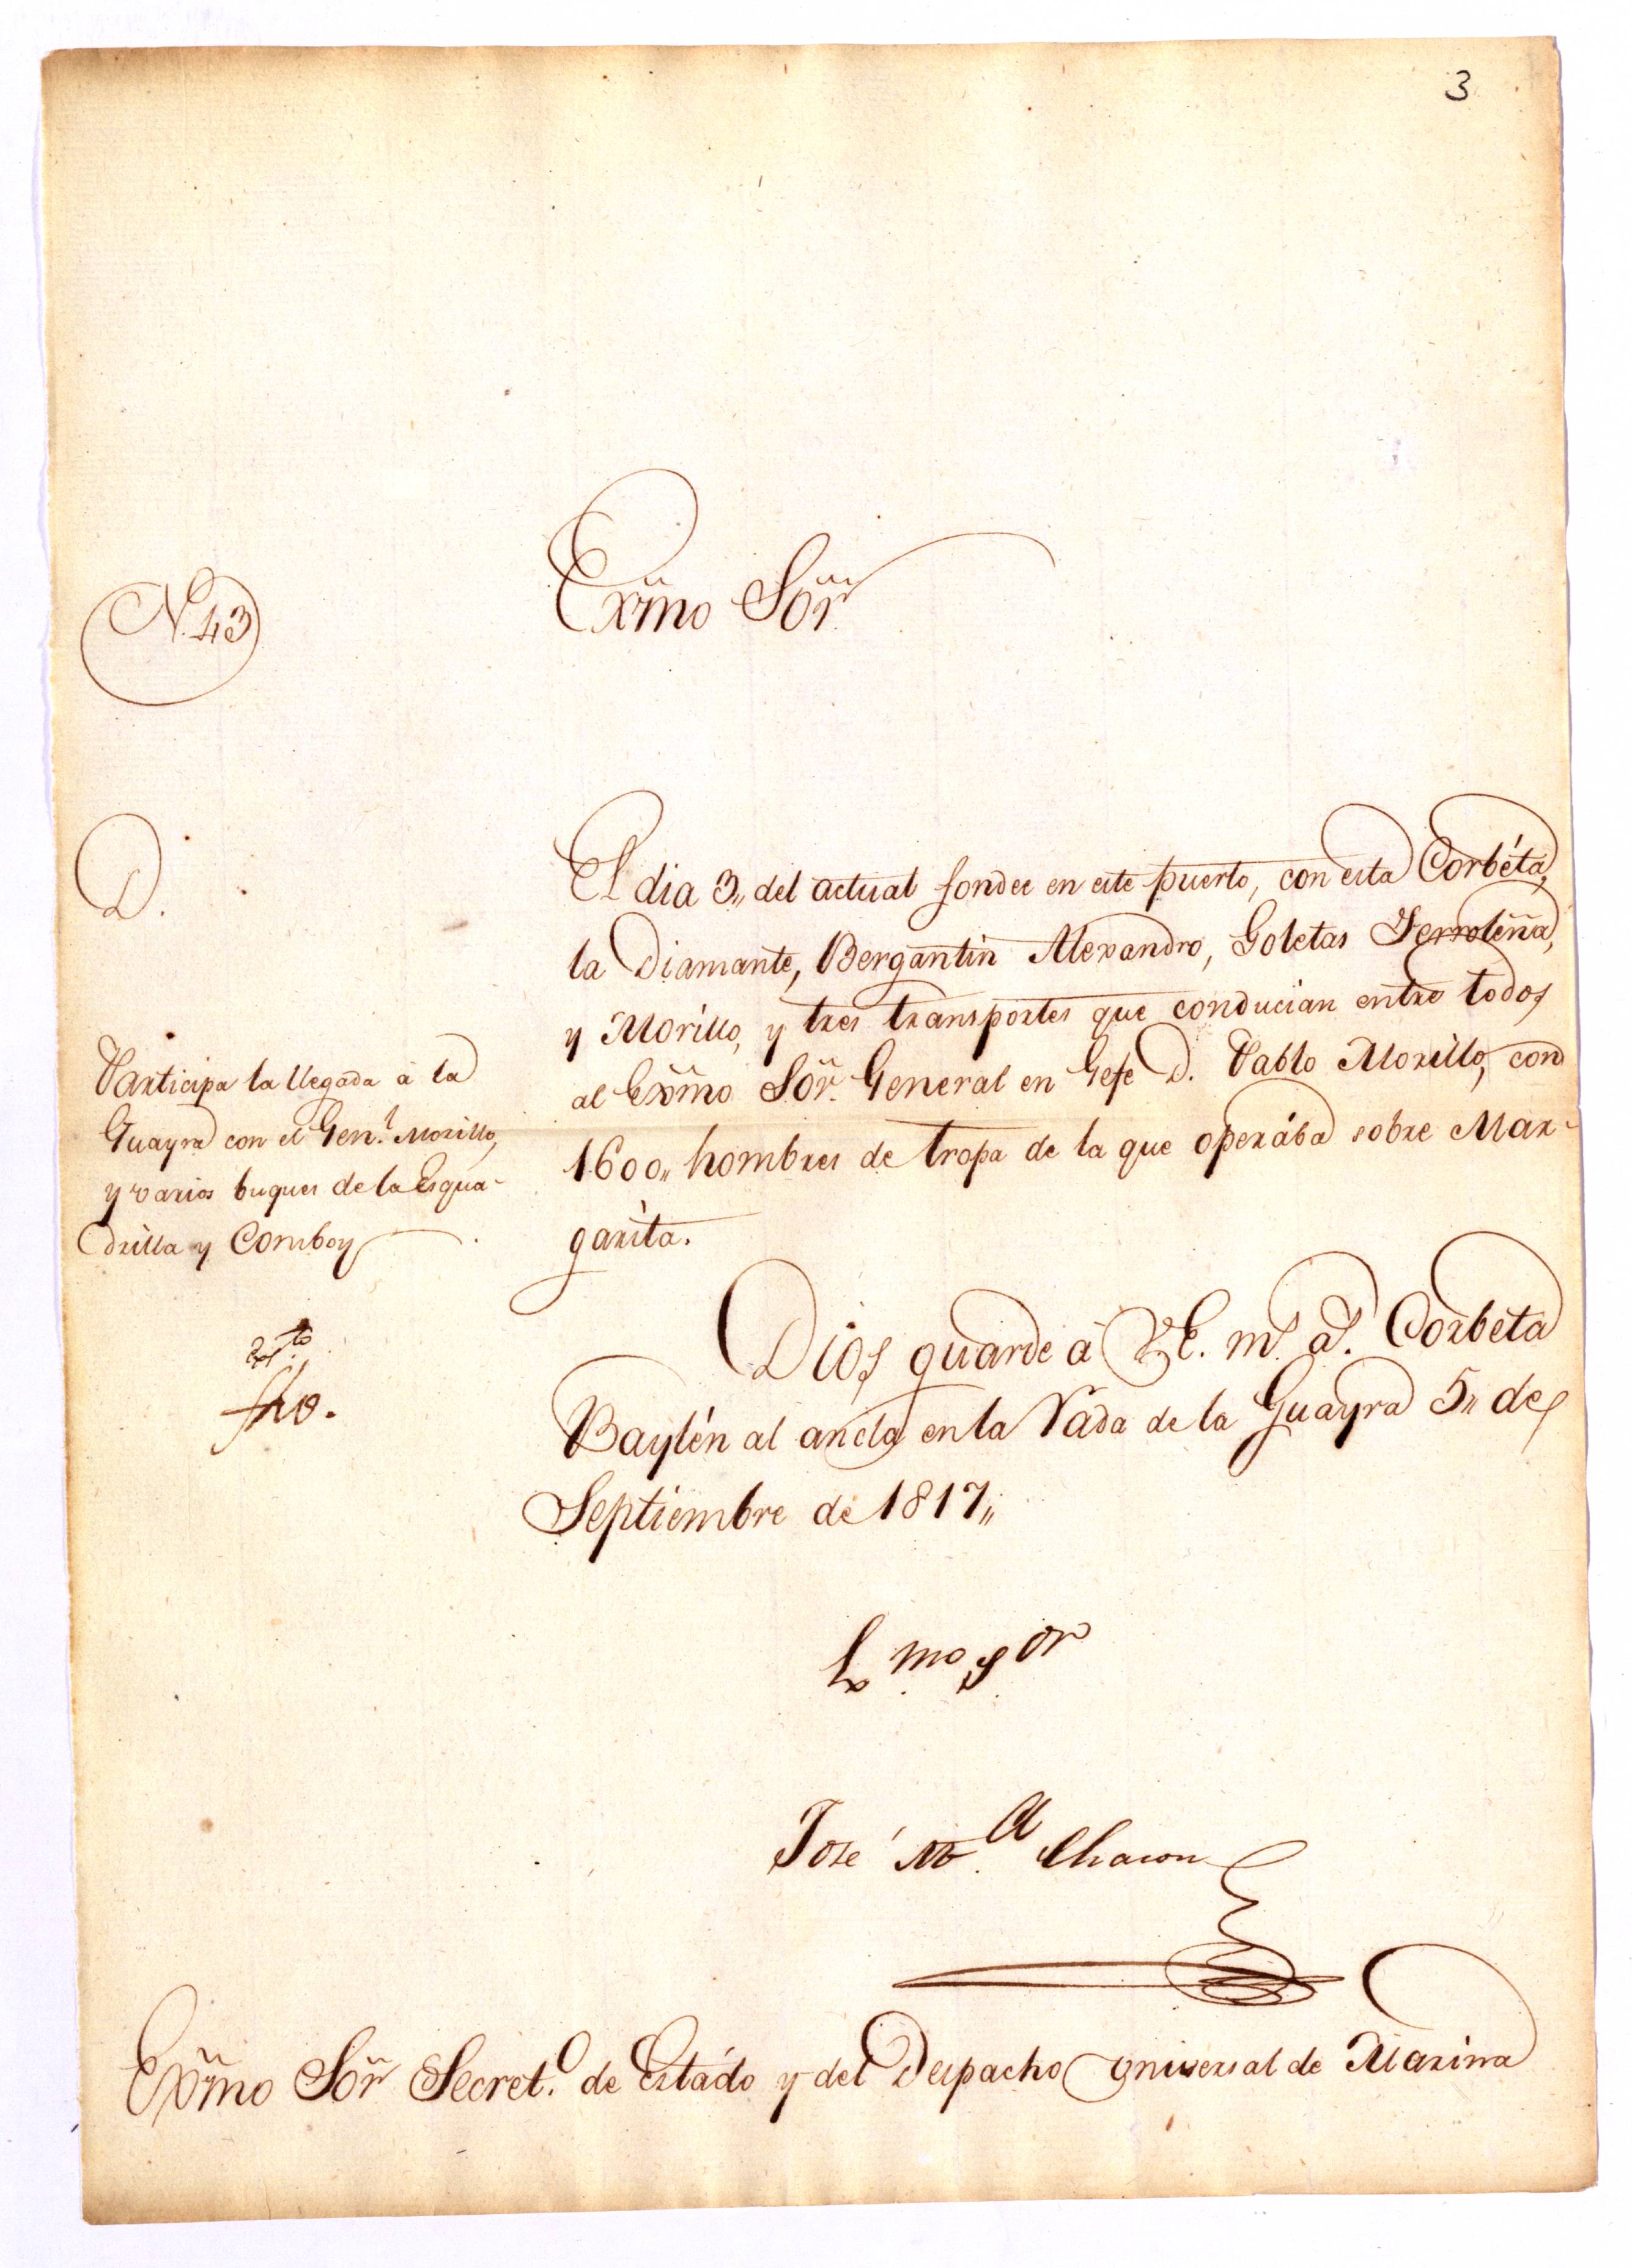 3
Exm̃o Sõr
N. 43
D.
El dia 3,, del actual fondee en este puerto, con esta Corbéta,
la Diamante, Bergantin Alexandro, Goletas Ferroleña,
y Morillo, y tres transportes que conducian entre todos
al Exm̃o Sõr. General en Gefe D. Pablo Morillo, con
1600,, hombres de tropa de la que operába sobre Mar-
garita.
Participa la llegada à la
Guayra con el Gen.l Morillo,
y varios buques de la Esqua-
drilla y Comboy
fho.
Dios guarde á V.E. m.s a.s Corbeta
Baylén al ancla en la Rada de la Guayra 5,, de
Septiembre de 1817,,
Ex.mo S.or
José M.a Chacon
Exm̃o Sõr Secret.o de Estádo y del Despacho Universal de Marina